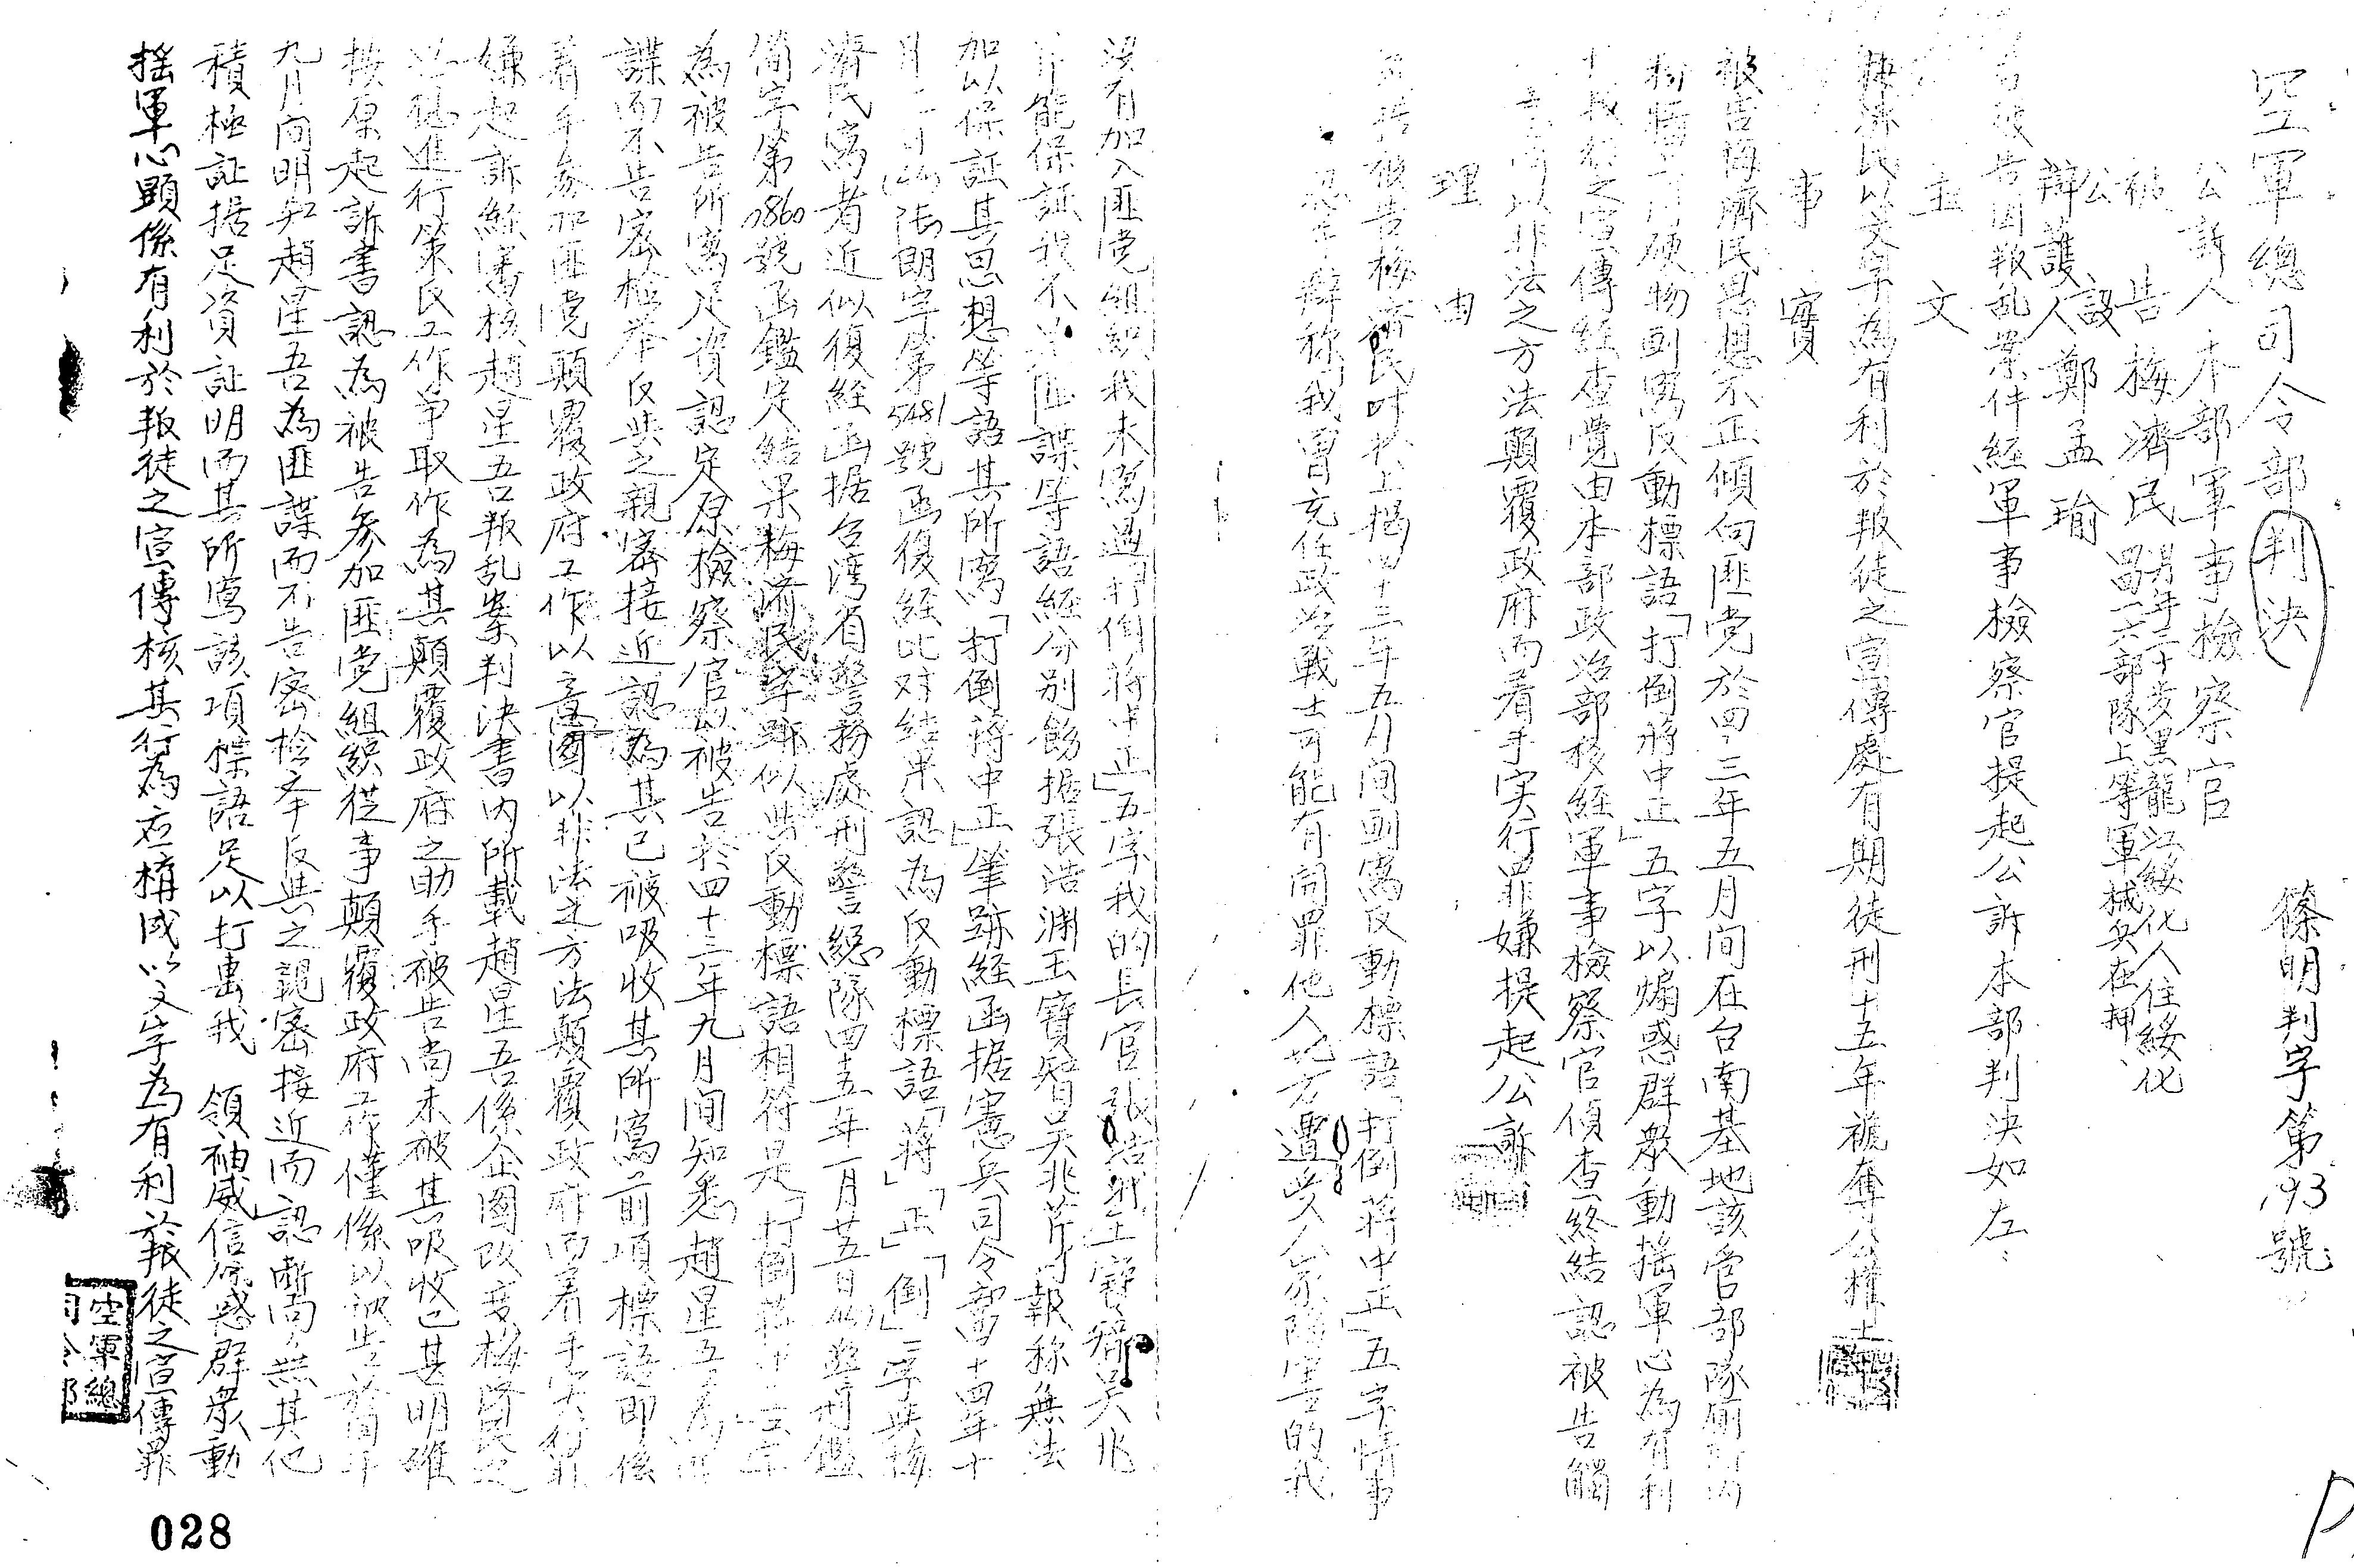 空軍總司令部判決
篠明判字第193號
公訴人本部軍事檢察官
被告梅濟民男年三十歲黑龍江綏化人住綏化
四一六部隊上等軍械兵在押
公設
辯護人鄭孟瑜
被告因叛乱案件經軍事檢察官提起公訴本部判決如左
主文
梅濟民以文字為有利於叛徒之宣傳處有期徒刑十五年褫奪公權
事實
被告梅濟民思想不正傾向匪党於四三年五月间在台南基地該官部隊厠所內
粉牆上用硬物刻寫反動標語「打倒蔣中正」五字以煽惑群衆動搖軍心為有利
於叛徒之宣傳經查覺由本部政治部移經軍事檢察官偵查終結認被告觸
以非法之方法顛覆政府而着手実行罪嫌提起公訴
理由
被告梅濟民对於上揭四十三年五月间刻寫反動標語「打倒蔣中正」五字情事
辯称「我曾充任政治戰士可能有開罪他人地方遭受人家陷害的我
沒有加入匪党組織我未寫過「打倒蔣中正」五字我的長官張浩渊王寶智吴兆
芹能保証我不是匪諜等語經分別飭据張浩渊王寶智吴兆芹報称無法
加以保証其思想等語其所寫「打倒蔣中正」筆跡經函据憲兵司令部四十四年十
月一日(44)张朗字第5481號函復經比对結果認為反動標語「蔣」「正」「倒」三字與梅
濟民寫者近似復經函据台湾省警務處刑警總隊四五年一月廿五日(45)警刑鑑
簡字第0860號函鑑定結果梅濟民字跡似與反動標語相符是「打倒蔣中正」五字
為被告所寫足資認定原檢察官以被告於四十三年九月间知悉趙星吾為匪
諜而不告密檢举反與之親密接近認為其已被吸收其所寫前項標語即係
着手参加匪党顛覆政府工作以意圖以非法之方法顛覆政府而着手実行罪
嫌起訴經審核趙星吾叛乱案判決書内所載趙星吾係企圖改变梅濟民之
進行策反工作争取作為其顛覆政府之助手被告尚未被其吸收已甚明確
按原起訴書認為被告参加匪党組織從事顛覆政府工作僅係以被告於同年
九月间明知趙星吾為匪諜而不告密检举反與之親密接近而認斷尚無其他
積極証据足資証明而其所寫該項標語足以打擊我　領袖威信煽惑群衆動
搖軍心顯係有利於叛徒之宣傳核其行為应構成以文字為有利於叛徒之宣傳罪
空軍總
司令部
028